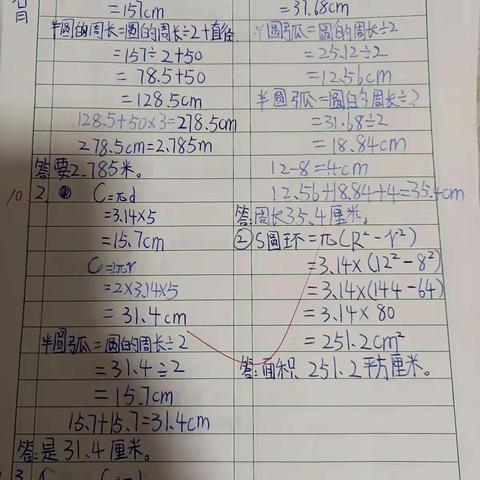 =157cm
半圆的周长=圆的周长÷2+直径
=157÷2+50
=78.5+50
=128.5cm
128.5+50×3=278.5cm
278.5cm=2.785m
答:要2.785米。
10 2. C=πd
=3.14×5
=15.7cm
C=2πr
=2×3.14×5
=31.4cm
半圆弧=圆的周长÷2
=31.4÷2
=15.7cm
15.7+15.7=31.4cm
答:是31.4厘米。
3
=37.68cm
半圆弧=圆的周长÷2
=25.12÷2
=12.56cm
半圆弧=圆的周长÷2
=31.68÷2
=18.84cm
12-8=4cm
12.56+18.84+4=35.4cm
答:周长35.4厘米。
②S圆环=π(R²-r²)
=3.14×(12²-8²)
=3.14×(144-64)
=3.14×80
=251.2cm²
答:面积251.2平方厘米。